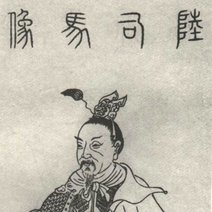 陸司馬像